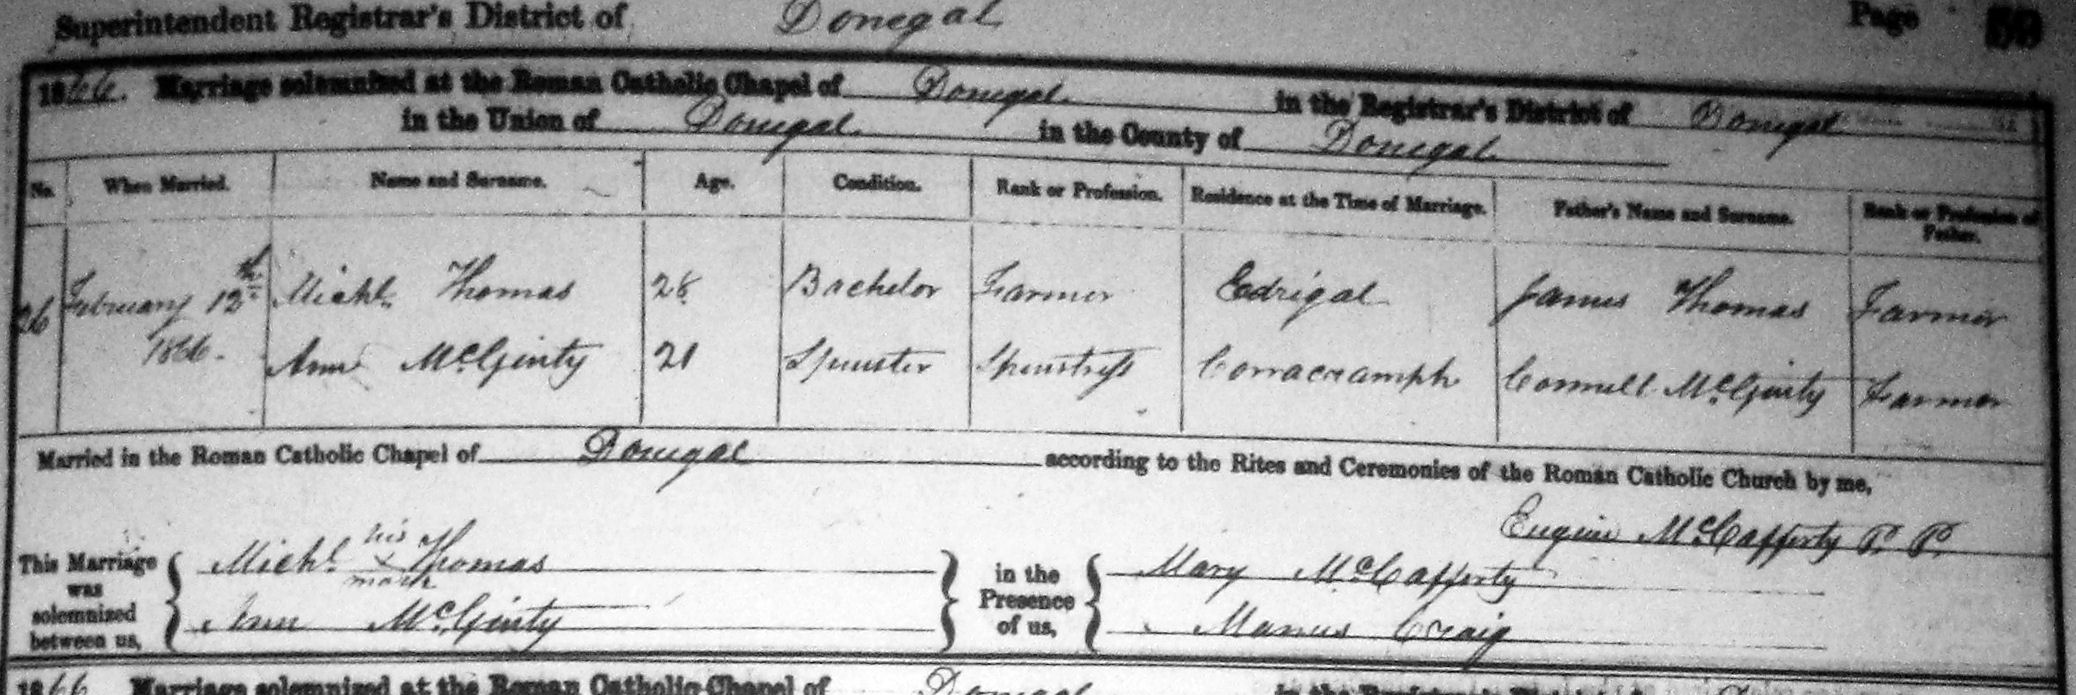 Superintendent Registrar's District of Donegal Page 59
1866. Marriage solemnized at the Roman Catholic Chapel of Donegal in the Registrar's District of Donegal
in the Union of Donegal in the County of Donegal
No. When Married. Name and Surname. Age. Condition. Rank or Profession. Residence at the Time of Marriage. Father's Name and Surname. Rank or Profession of Father.
26 February 12th 1866. Michl. Thomas 28 Bachelor Farmer Edrigal James Thomas Farmer
Ann McGinty 21 Spinster Spinstress Connell McGinty Farmer
Married in the Roman Catholic Chapel of Donegal according to the Rites and Ceremonies of the Roman Catholic Church by me,
Eugine McCafferty P. P.
This Marriage was solemnized between us, Michl. his x mark Thomas
Ann McGinty
in the Presence of us, Mary McCafferty
Manus Craig
1866 Marriage solemnized at the Roman Catholic Chapel of Donegal